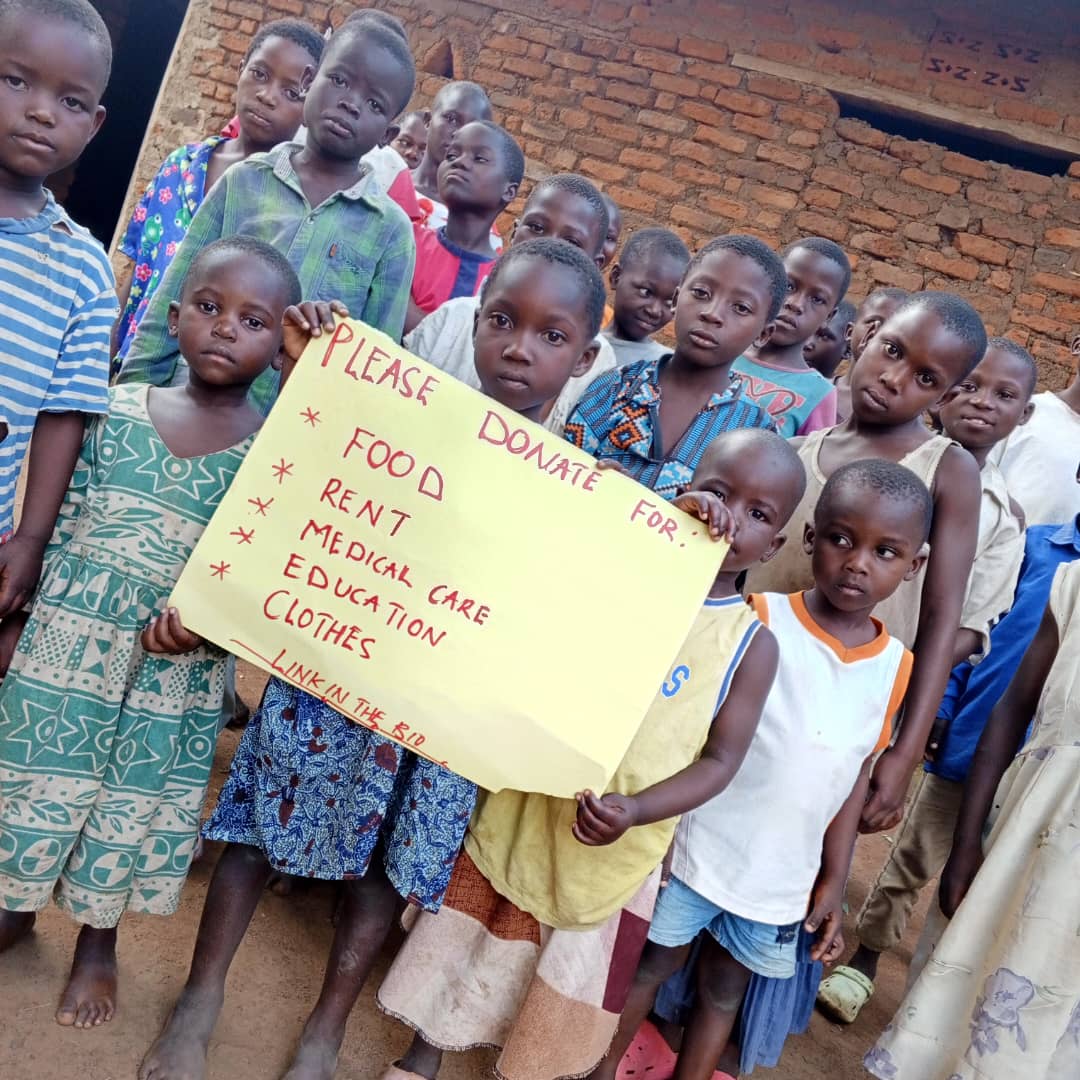 PLEASE DONATE FOR:
* FOOD
* RENT
* MEDICAL CARE
* EDUCATION
* CLOTHES
LINK IN THE BIO
S